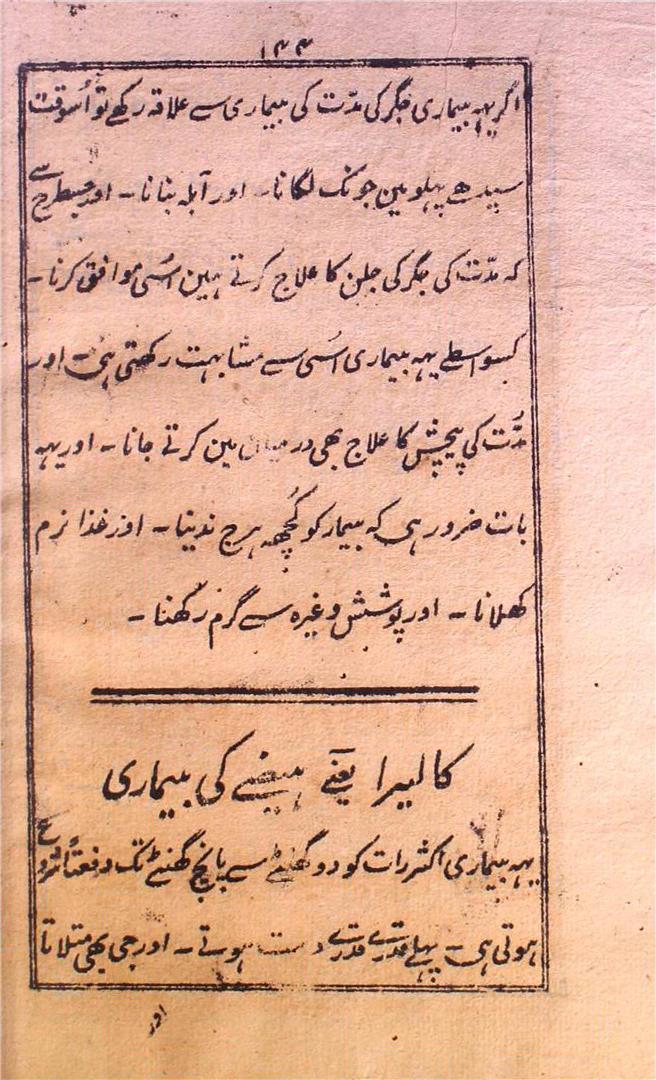 ۱۴۴
اگر یہہ بیماری جگر کی مدّت کی بیماری سے علاقہ رکھے تو اُسوقت
سیدھے پہلو مین جونک لگانا۔ اور آبلہ بنانا۔ اور جسطرح سے
کہ مدّت کی جگر کی جلن کا علاج کرتے ہین اُسی موافق کرنا۔
کسواسطے یہہ بیماری اُسی سے مشابہت رکھتی ہی۔ اور
مدّت کی پیچش کا علاج بھی درمیان مین کرتے جانا۔ اور یہہ
بات ضرور ہی کہ بیمار کو کُچھہ ہرج ندینا۔ اور غذا نرم
کھلانا۔ اور پوشش وغیرہ سے گرم رکھنا۔
کالیرا یعنے ہیضے کی بیماری
یہہ بیماری اکثر رات کو دو گھنٹے سے پانچ گھنٹے تک دفعتاً شروع
ہوتی ہی۔ پہلے قدرے قدرے دست ہوتے۔ اور جی بھی متلاتا
اور